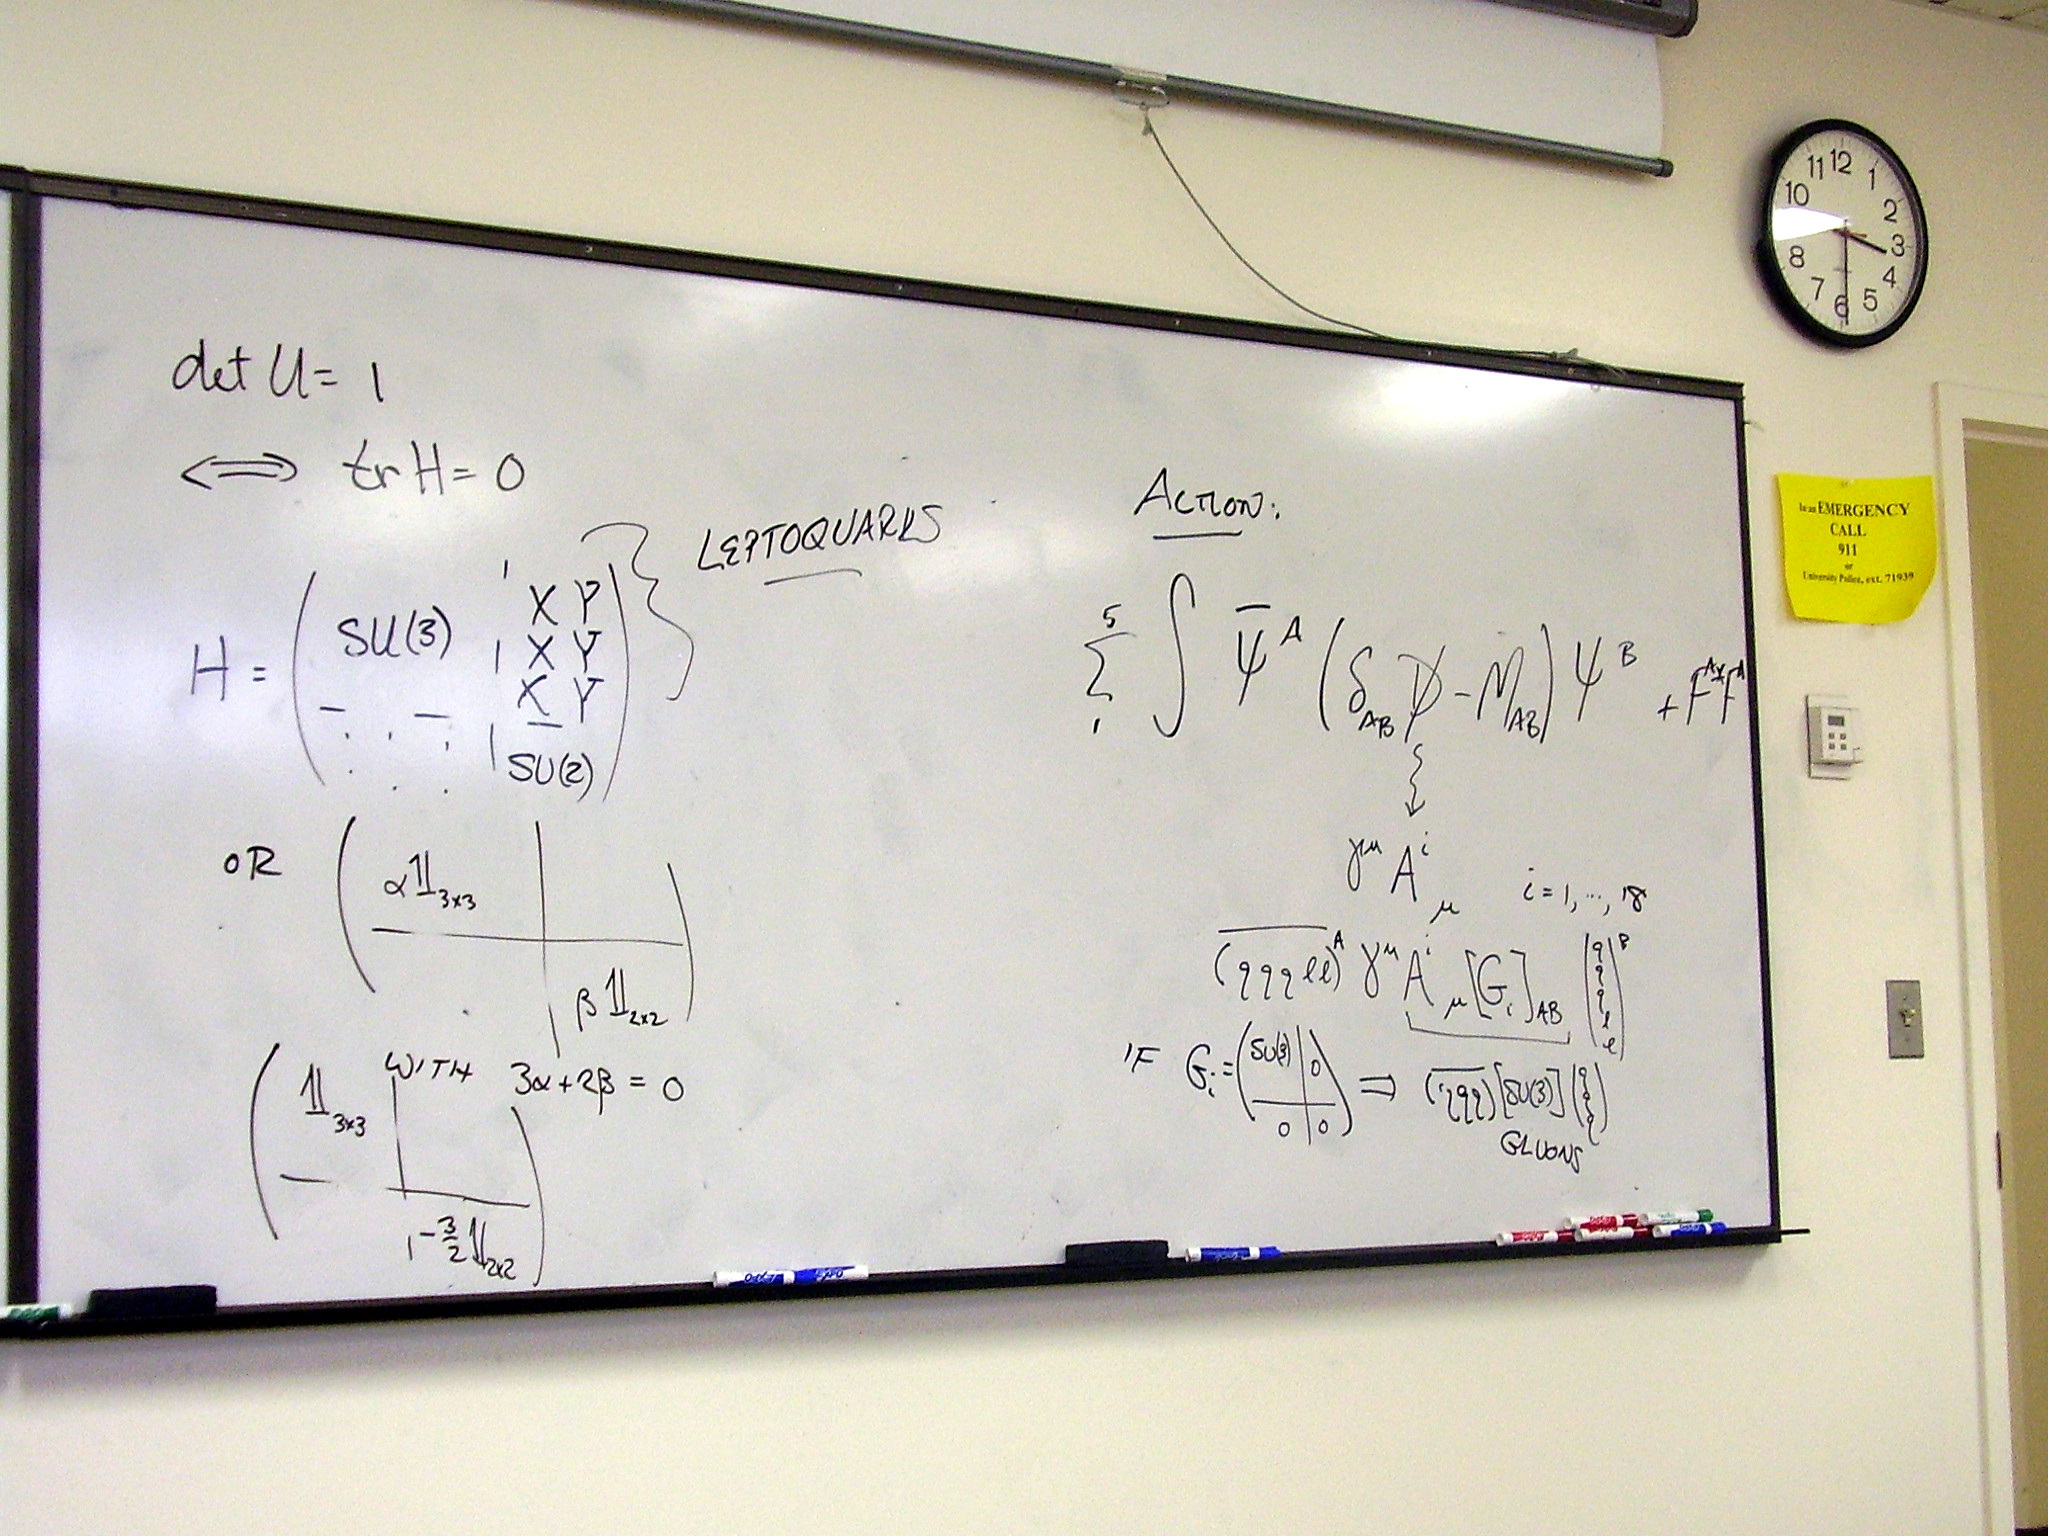 det U = 1
⟺ tr H = 0
LEPTOQUARKS
H = ( SU(3) | X Y
| X Y
| X Y
| SU(2) )
OR ( α 𝟙 3×3
β 𝟙 2×2 )
WITH 3α + 2β = 0
( 𝟙 3×3
-3/2 𝟙 2×2 )
ACTION:
5 Σ 1 ∫ ψ̄^A (δ_AB D̸ - M_AB) ψ^B + F^A * F^A
γ^μ A^i_μ i = 1, ..., 18
(q q q l l)^A γ^μ A^i_μ [G_i]_AB (q q q l l)^B
IF G_i = ( SU(3) | 0
0 | 0 ) ⟹ (q q q) [SU(3)] (q q q)
GLUONS
11 12 1
10 2
3
8 4
7 6 5
In an EMERGENCY
CALL
911
or
University Police, ext. 71939
EXPO